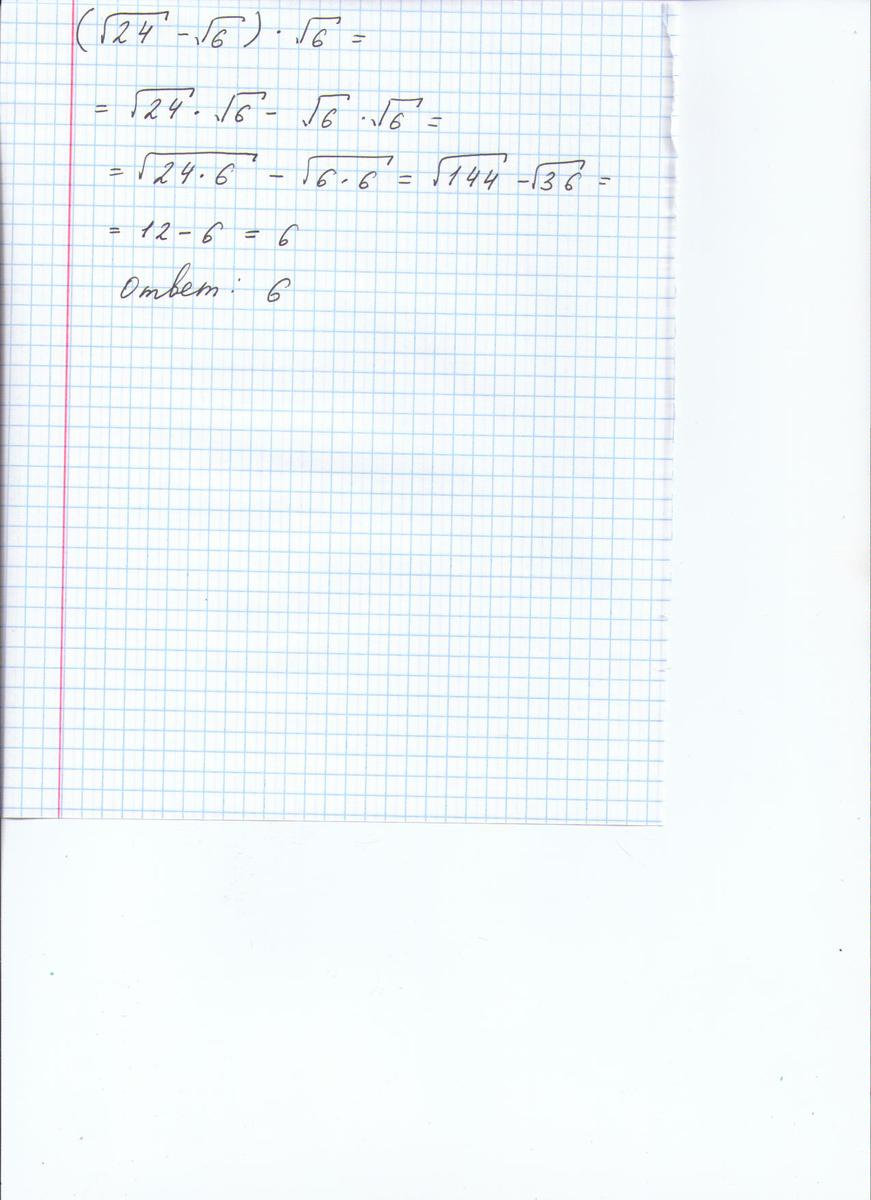 (√24 - √6) · √6 =
= √24 · √6 - √6 · √6 =
= √24·6 - √6·6 = √144 - √36 =
= 12 - 6 = 6
Ответ: 6